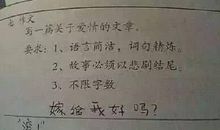 作文
写一篇关于爱情的文章.
要求: 1、语言简洁，词句精炼。
2、故事必须以悲剧结尾。
3、不限字数
嫁给我好吗?
滚!